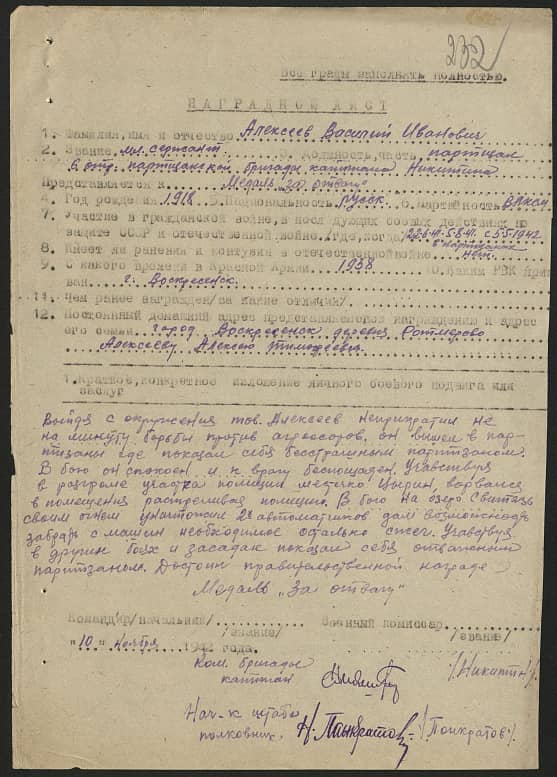 232
Все графы заполнять полностью.
НАГРАДНОЙ ЛИСТ
1. Фамилия, имя и отчество Алексеев Василий Иванович
2. Звание мл. сержант 3. Должность, часть партизан
6 отр. партизанской бригады капитана Никитина
Представляется к Медаль "За отвагу"
4. Год рождения 1918 5. Национальность русск. 6. Партийность ВЛКСМ
7. Участие в гражданской войне, в последующих боевых действиях по
защите СССР и отечественной войне /где, когда/ 22.6.41-5.8.41. с 5.5.1942
в партизанах
8. Имеет ли ранения и контузии в отечественной войне нет.
9. С какого времени в Красной Армии 1938 10. Каким РВК приз
ван г. Воскресенск
11. Чем ранее награжден /за какие отличия/
12. Постоянный домашний адрес представляемого к награждению и адрес
его семьи город Воскресенск деревня Ротмерово
Алексееву Алексею Тимофеевич
1. Краткое, конкретное изложение личного боевого подвига или
заслуг
Выйдя с окружения тов. Алексеев неприпратил не
на минуту борьбы против агрессоров, он вышел в пар-
тизаны где показал себя бесстрашным партизаном.
В бою он спокоен и к врагу беспощаден. Учавствуя
в разгроме участка полиции метечко Цырин, ворвался
в помещения растреливая полицию. В бою на озере Свитязь
своим огнем уничтожил 2х автоматчиков дал возможность
забрать с машин необходимое остально сжег. Учавствуя
в других боях и засадах показал себя отважным
партизаном. Достоин правительственной награде
Медаль "За отвагу"
Командир /начальник/ Военный комиссар
/звание/ /звание/
"10" ноября 1942 года.
Ком. бригады
капитан /Никитин/
Нач-к штаба
полковник. Н. Панкратов /Понкратов/